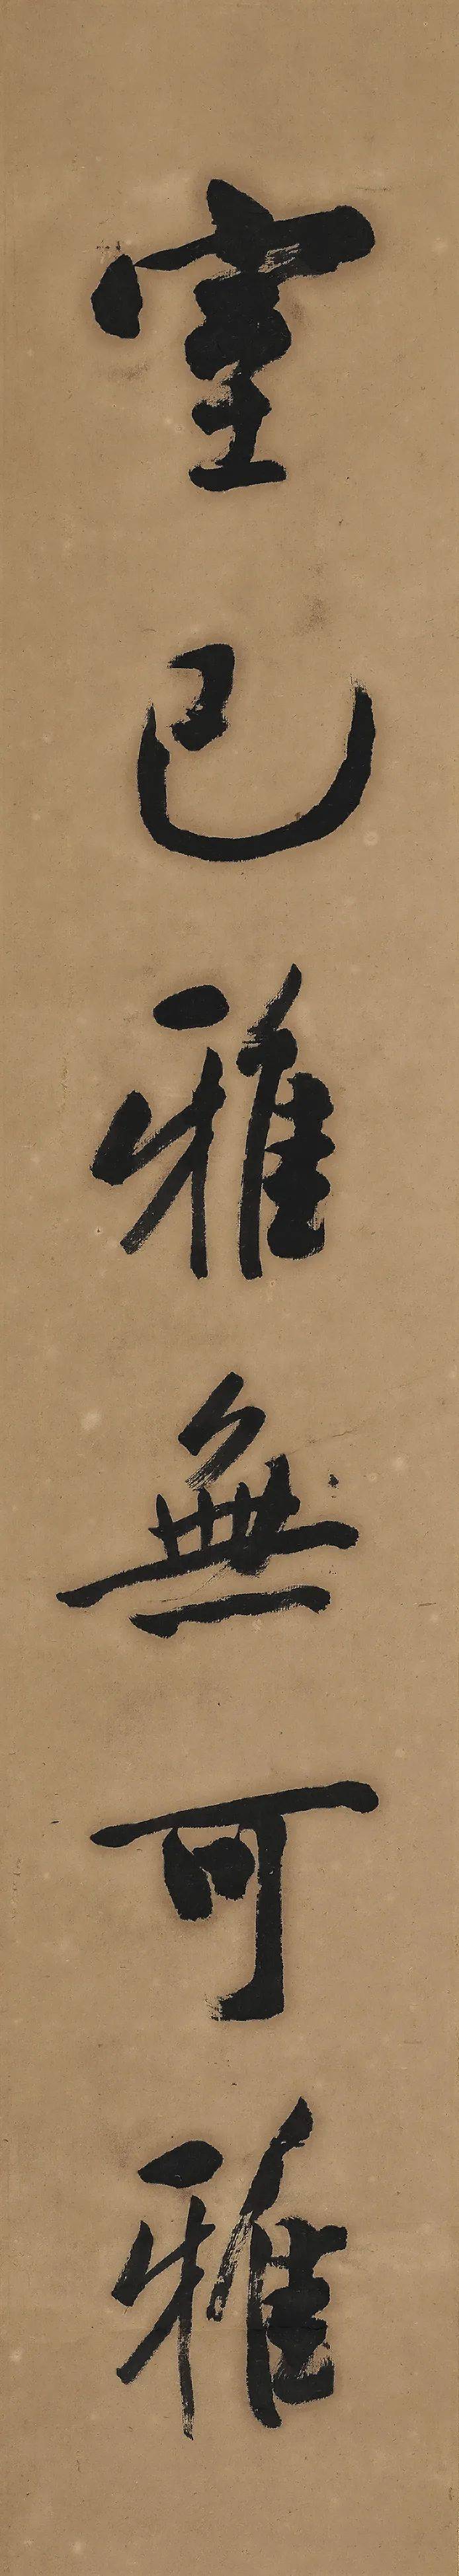 室已雅無可雅